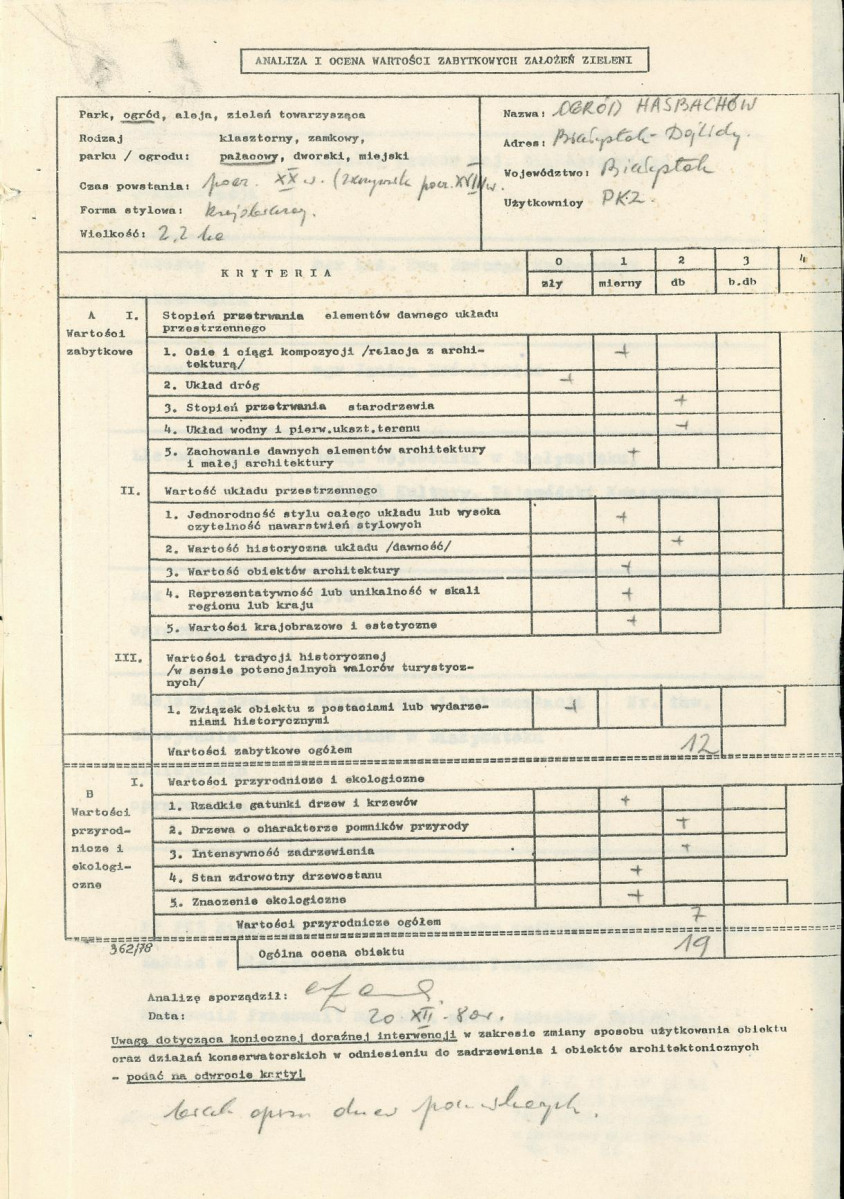 ANALIZA I OCENA WARTOŚCI ZABYTKOWYCH ZAŁOŻEŃ ZIELENI
Park, ogród, aleja, zieleń towarzysząca
Rodzaj klasztorny, zamkowy,
parku / ogrodu: pałacowy, dworski, miejski
Czas powstania: pocz. XX w. ( pocz. XVIII w.
Forma stylowa: krajobrazowy.
Wielkość: 2,2 ha
Nazwa: OGRÓD HASBACHÓW
Adres: Białystok - Dojlidy.
Województwo: Białystok
Użytkownicy PKZ.
KRYTERIA
0 1 2 3 4
zły mierny db b.db
A I. Stopień przetrwania elementów dawnego układu
Wartości przestrzennego
zabytkowe
1. Osie i ciągi kompozycji /relacja z archi-
tekturą/ +
2. Układ dróg +
3. Stopień przetrwania starodrzewia +
4. Układ wodny i pierw.ukszt.terenu +
5. Zachowanie dawnych elementów architektury
i małej architektury +
II. Wartość układu przestrzennego
1. Jednorodność stylu całego układu lub wysoka
czytelność nawarstwień stylowych +
2. Wartość historyczna układu /dawność/ +
3. Wartość obiektów architektury +
4. Reprezentatywność lub unikalność w skali
regionu lub kraju +
5. Wartości krajobrazowe i estetyczne +
III. Wartości tradycji historycznej
/w sensie potencjalnych walorów turystycz-
nych/
1. Związek obiektu z postaciami lub wydarze-
niami historycznymi +
Wartości zabytkowe ogółem 12
B I. Wartości przyrodnicze i ekologiczne
Wartości
przyrod-
nicze i
ekologi-
czne
1. Rzadkie gatunki drzew i krzewów +
2. Drzewa o charakterze pomników przyrody +
3. Intensywność zadrzewienia +
4. Stan zdrowotny drzewostanu +
5. Znaczenie ekologiczne +
Wartości przyrodnicze ogółem 7
362/78
Ogólna ocena obiektu 19
Analizę sporządził:
Data: 20 XII - 80r.
Uwagę dotyczącą koniecznej doraźnej interwencji w zakresie zmiany sposobu użytkowania obiektu
oraz działań konserwatorskich w odniesieniu do zadrzewienia i obiektów architektonicznych
- podać na odwrocie karty!
brak